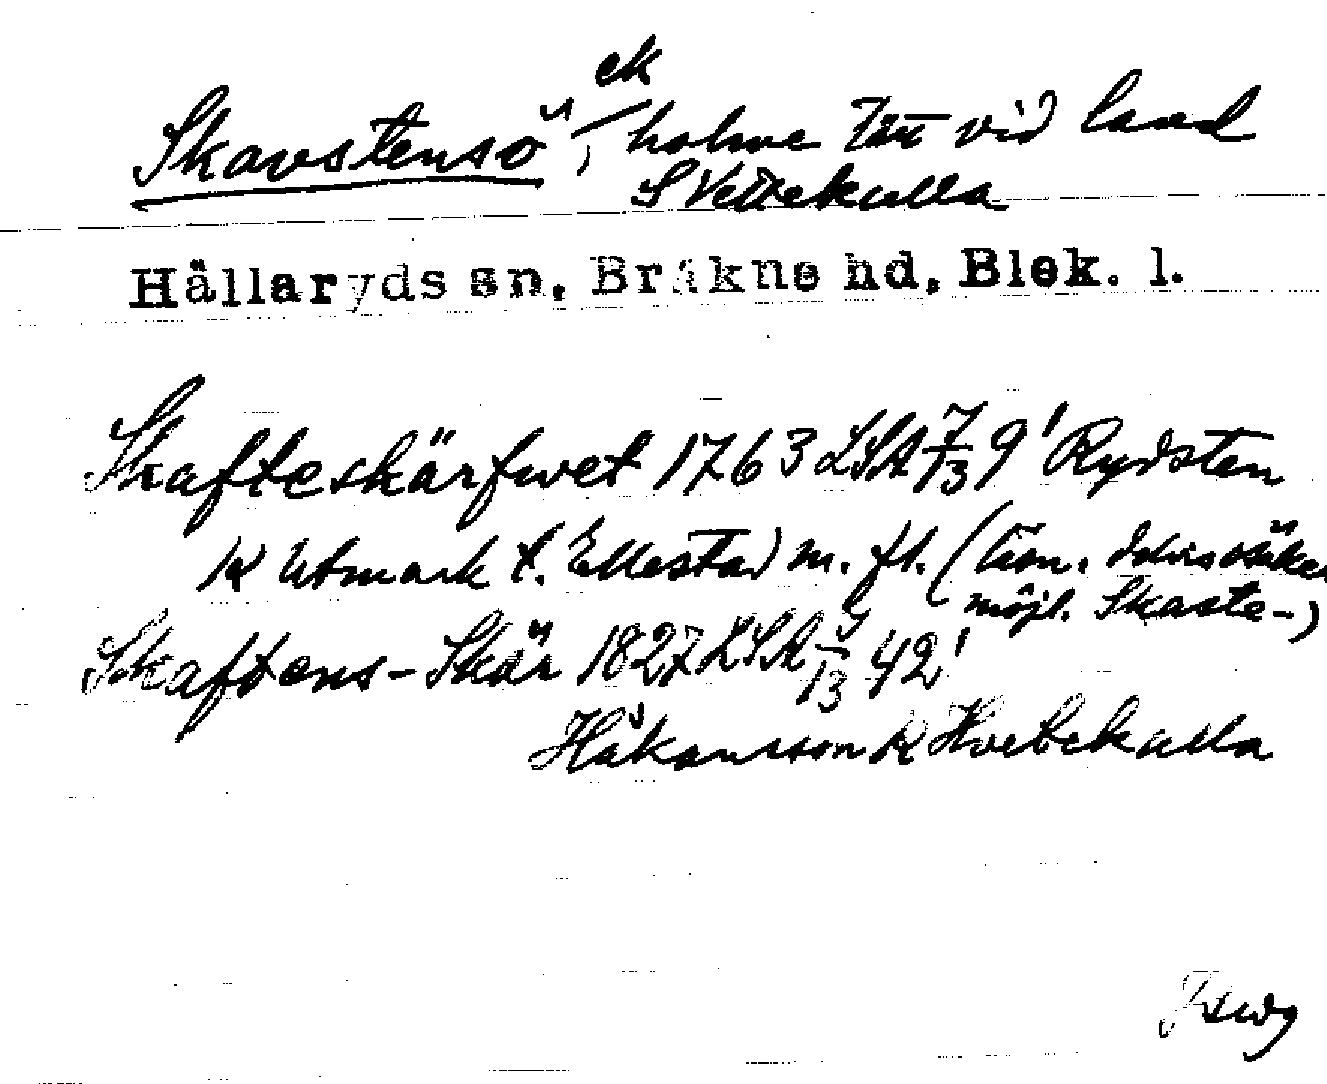 ek
Skavstensö, holme tätt vid land
S Vettekulla
Hällaryds sn, Bräkne hd, Blek. l.
Skafteskärfwet 1763 LSA 7/13 9' Rydsten
K Utmark t. Ellestad m. fl. (
möjl. Skaste-)
Skaftens-Skär 1827 LSA 13 42'
Håkansson R Hvetekulla